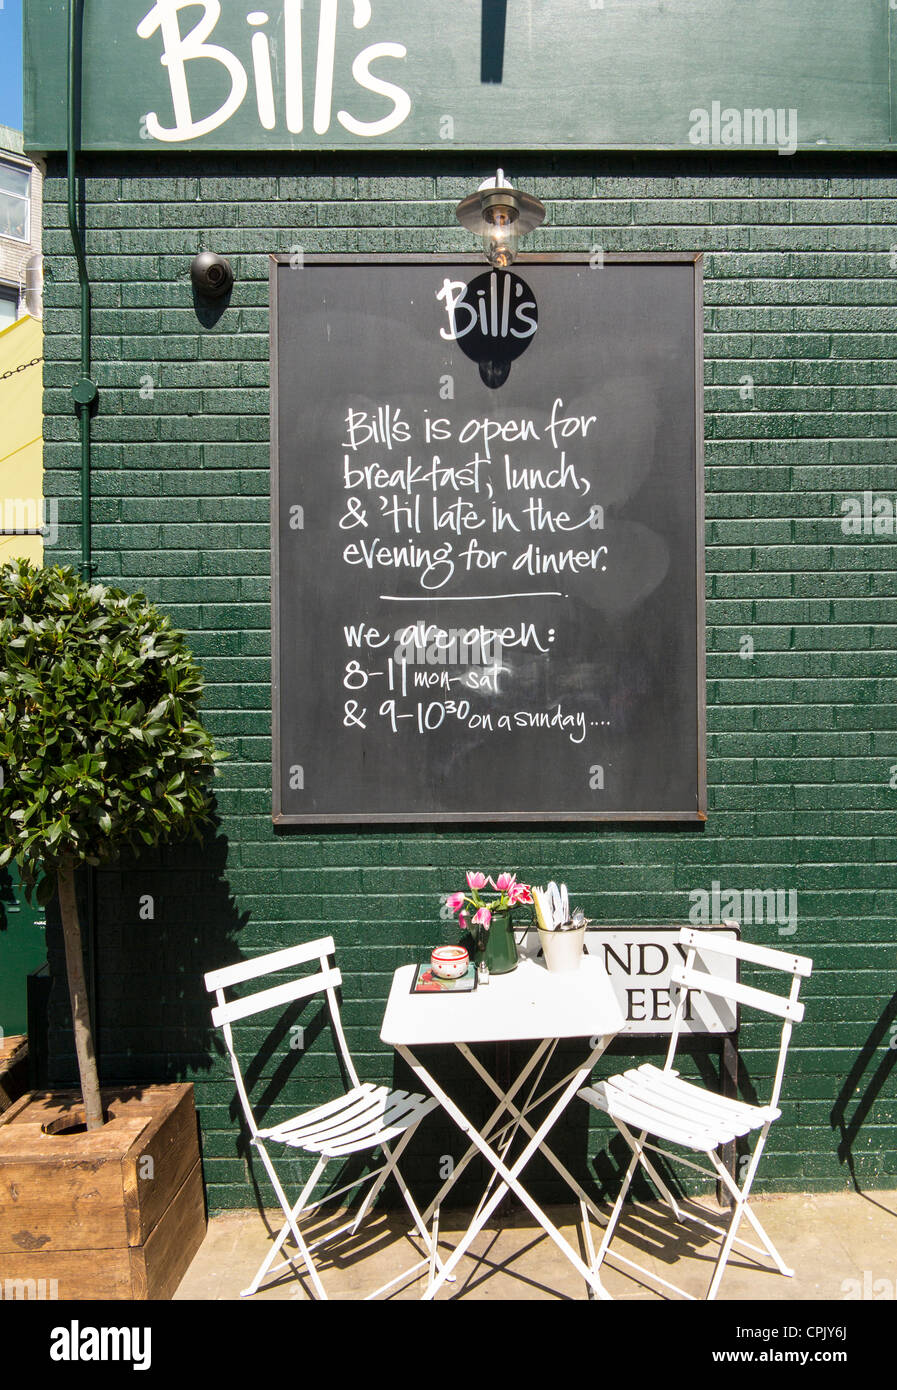 Bill's
Bill's
Bill's is open for
breakfast, lunch,
& 'til late in the
evening for dinner.
we are open:
8-11 mon-sat
& 9-10³⁰ on a sunday....
alamy
alamy
Image ID: CPJY6J
www.alamy.com